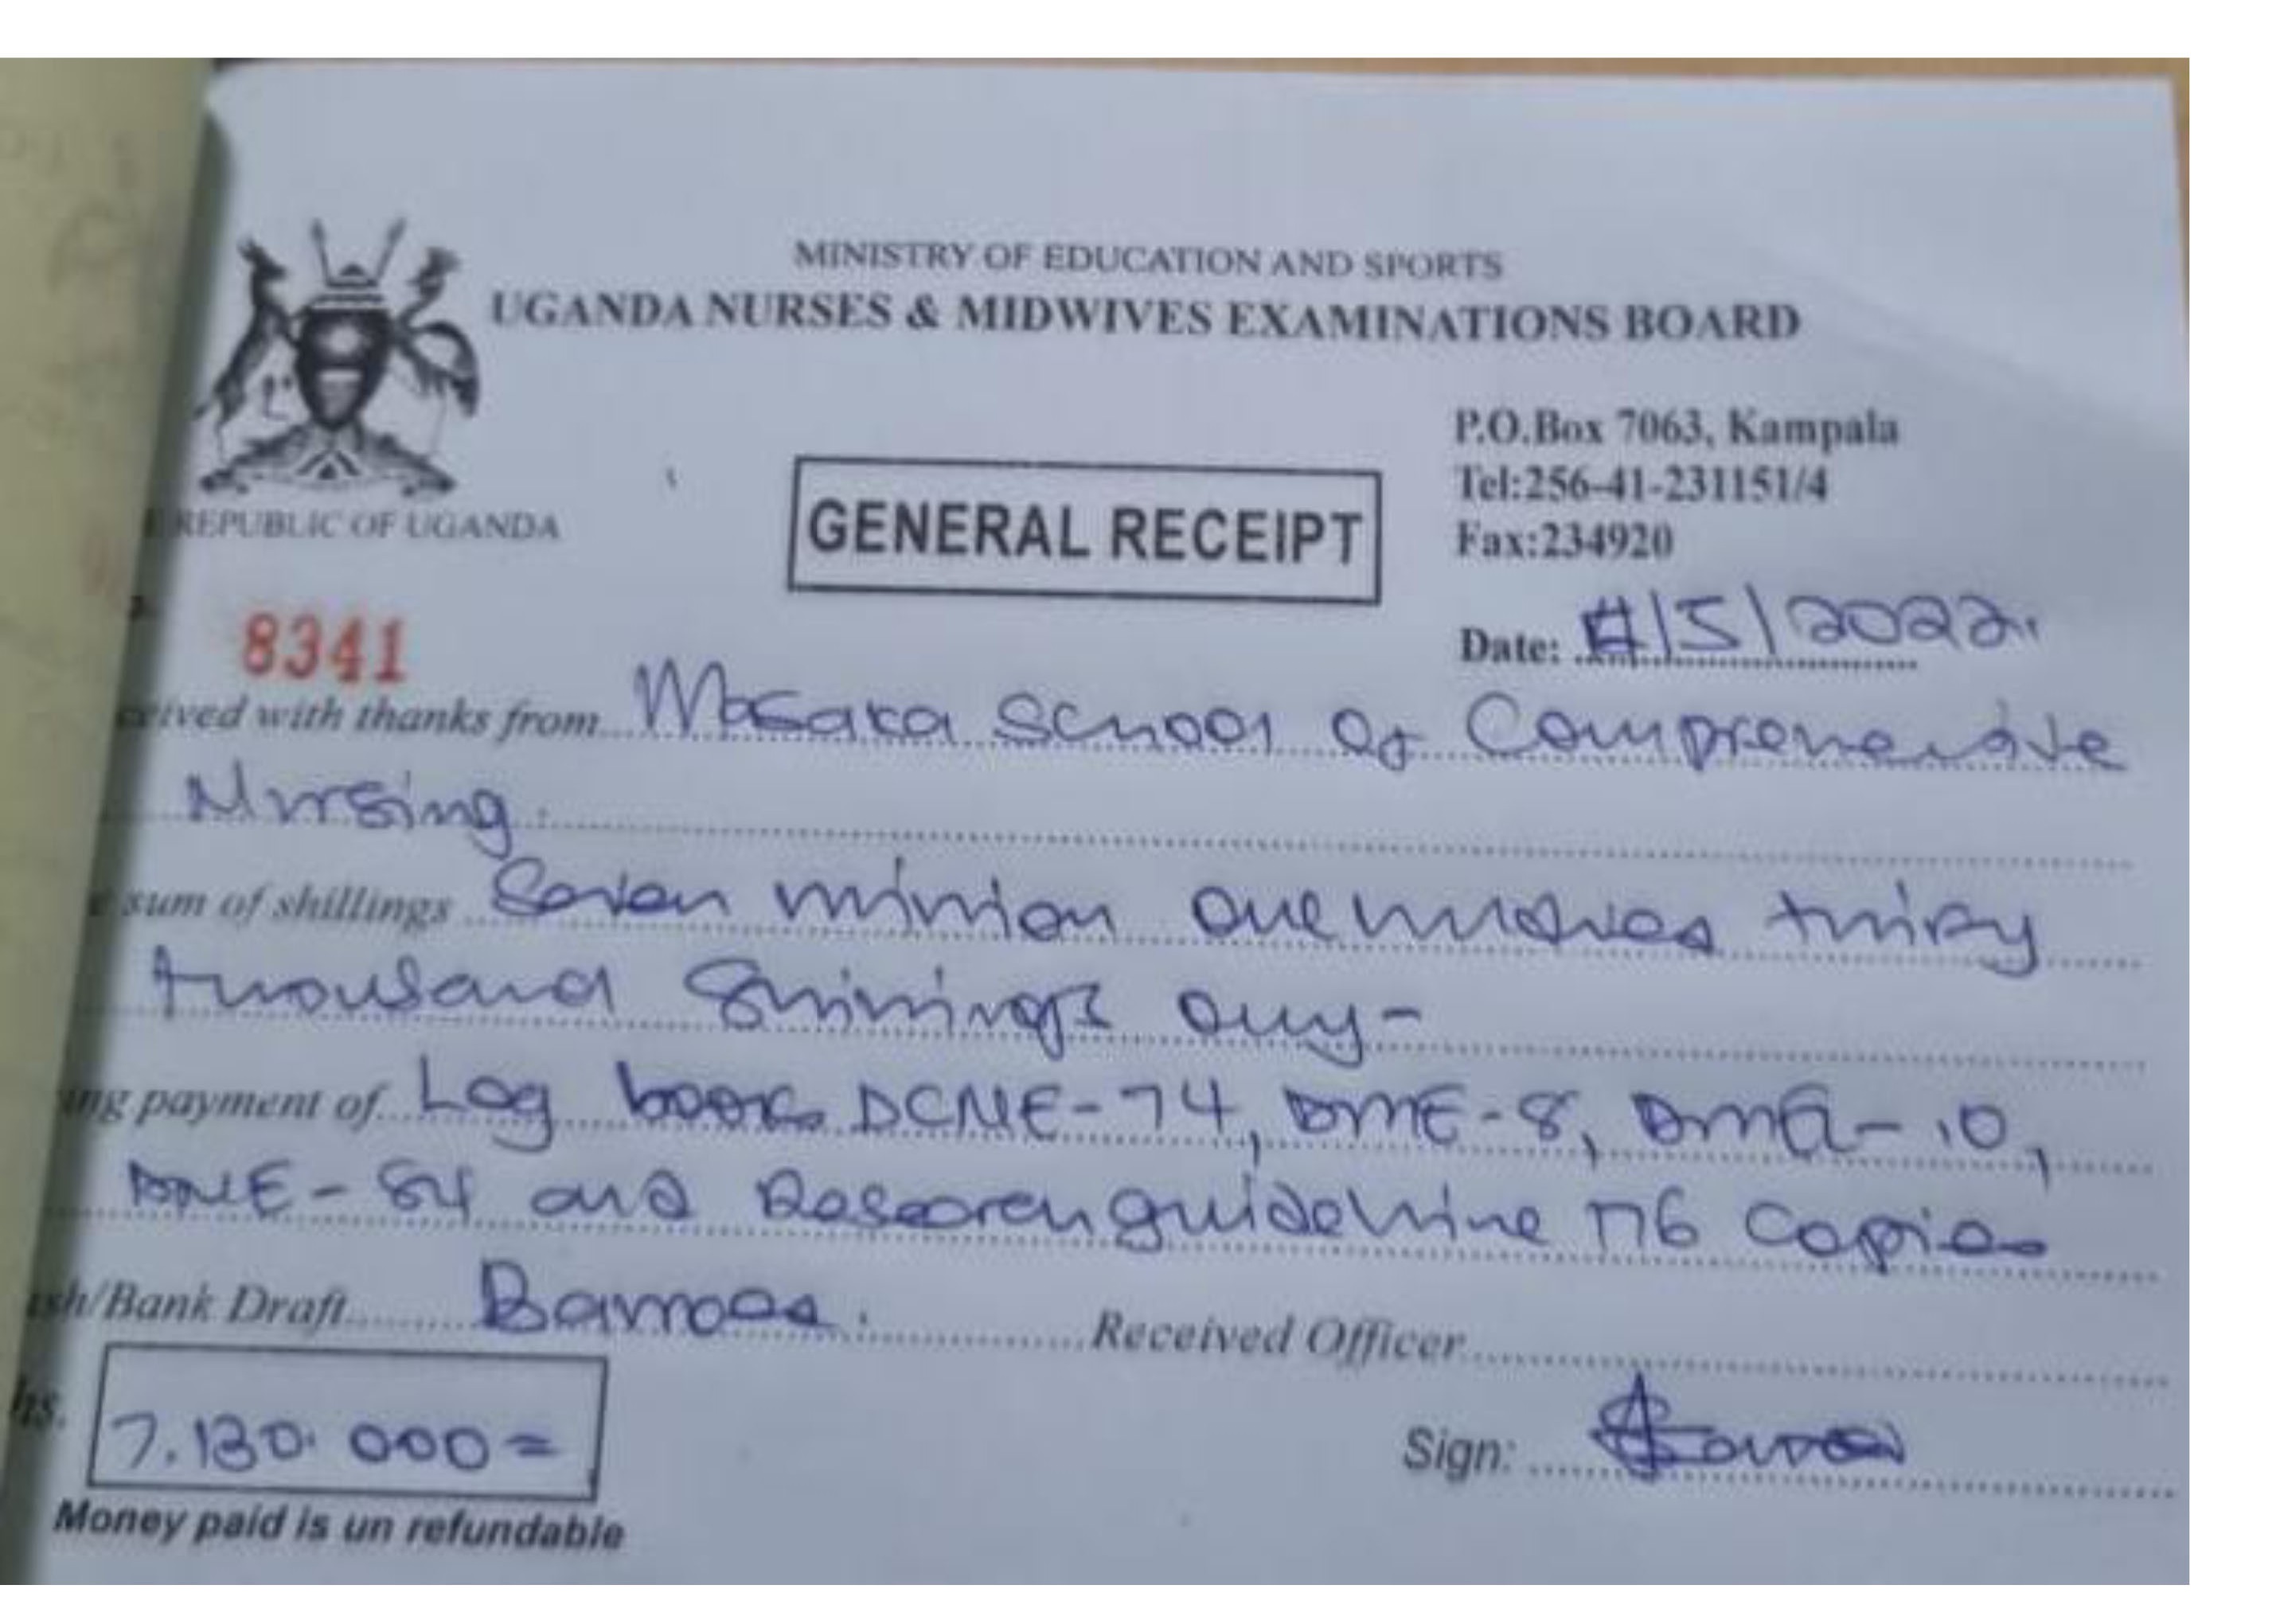 MINISTRY OF EDUCATION AND SPORTS
UGANDA NURSES & MIDWIVES EXAMINATIONS BOARD
P.O.Box 7063, Kampala
Tel:256-41-231151/4
Fax:234920
REPUBLIC OF UGANDA
GENERAL RECEIPT
8341
Date: /5/2022
eived with thanks from Masaka School of Comprehensive
Nursing.
sum of shillings Seven million one hundred thirty
thousand shillings only-
ng payment of Log books DCNE-74, DME-8, DME-10,
DNE-84 and Research guideline 176 Copies
sh/Bank Draft Received Officer
hs. 7.130.000=
Sign:
Money paid is un refundable